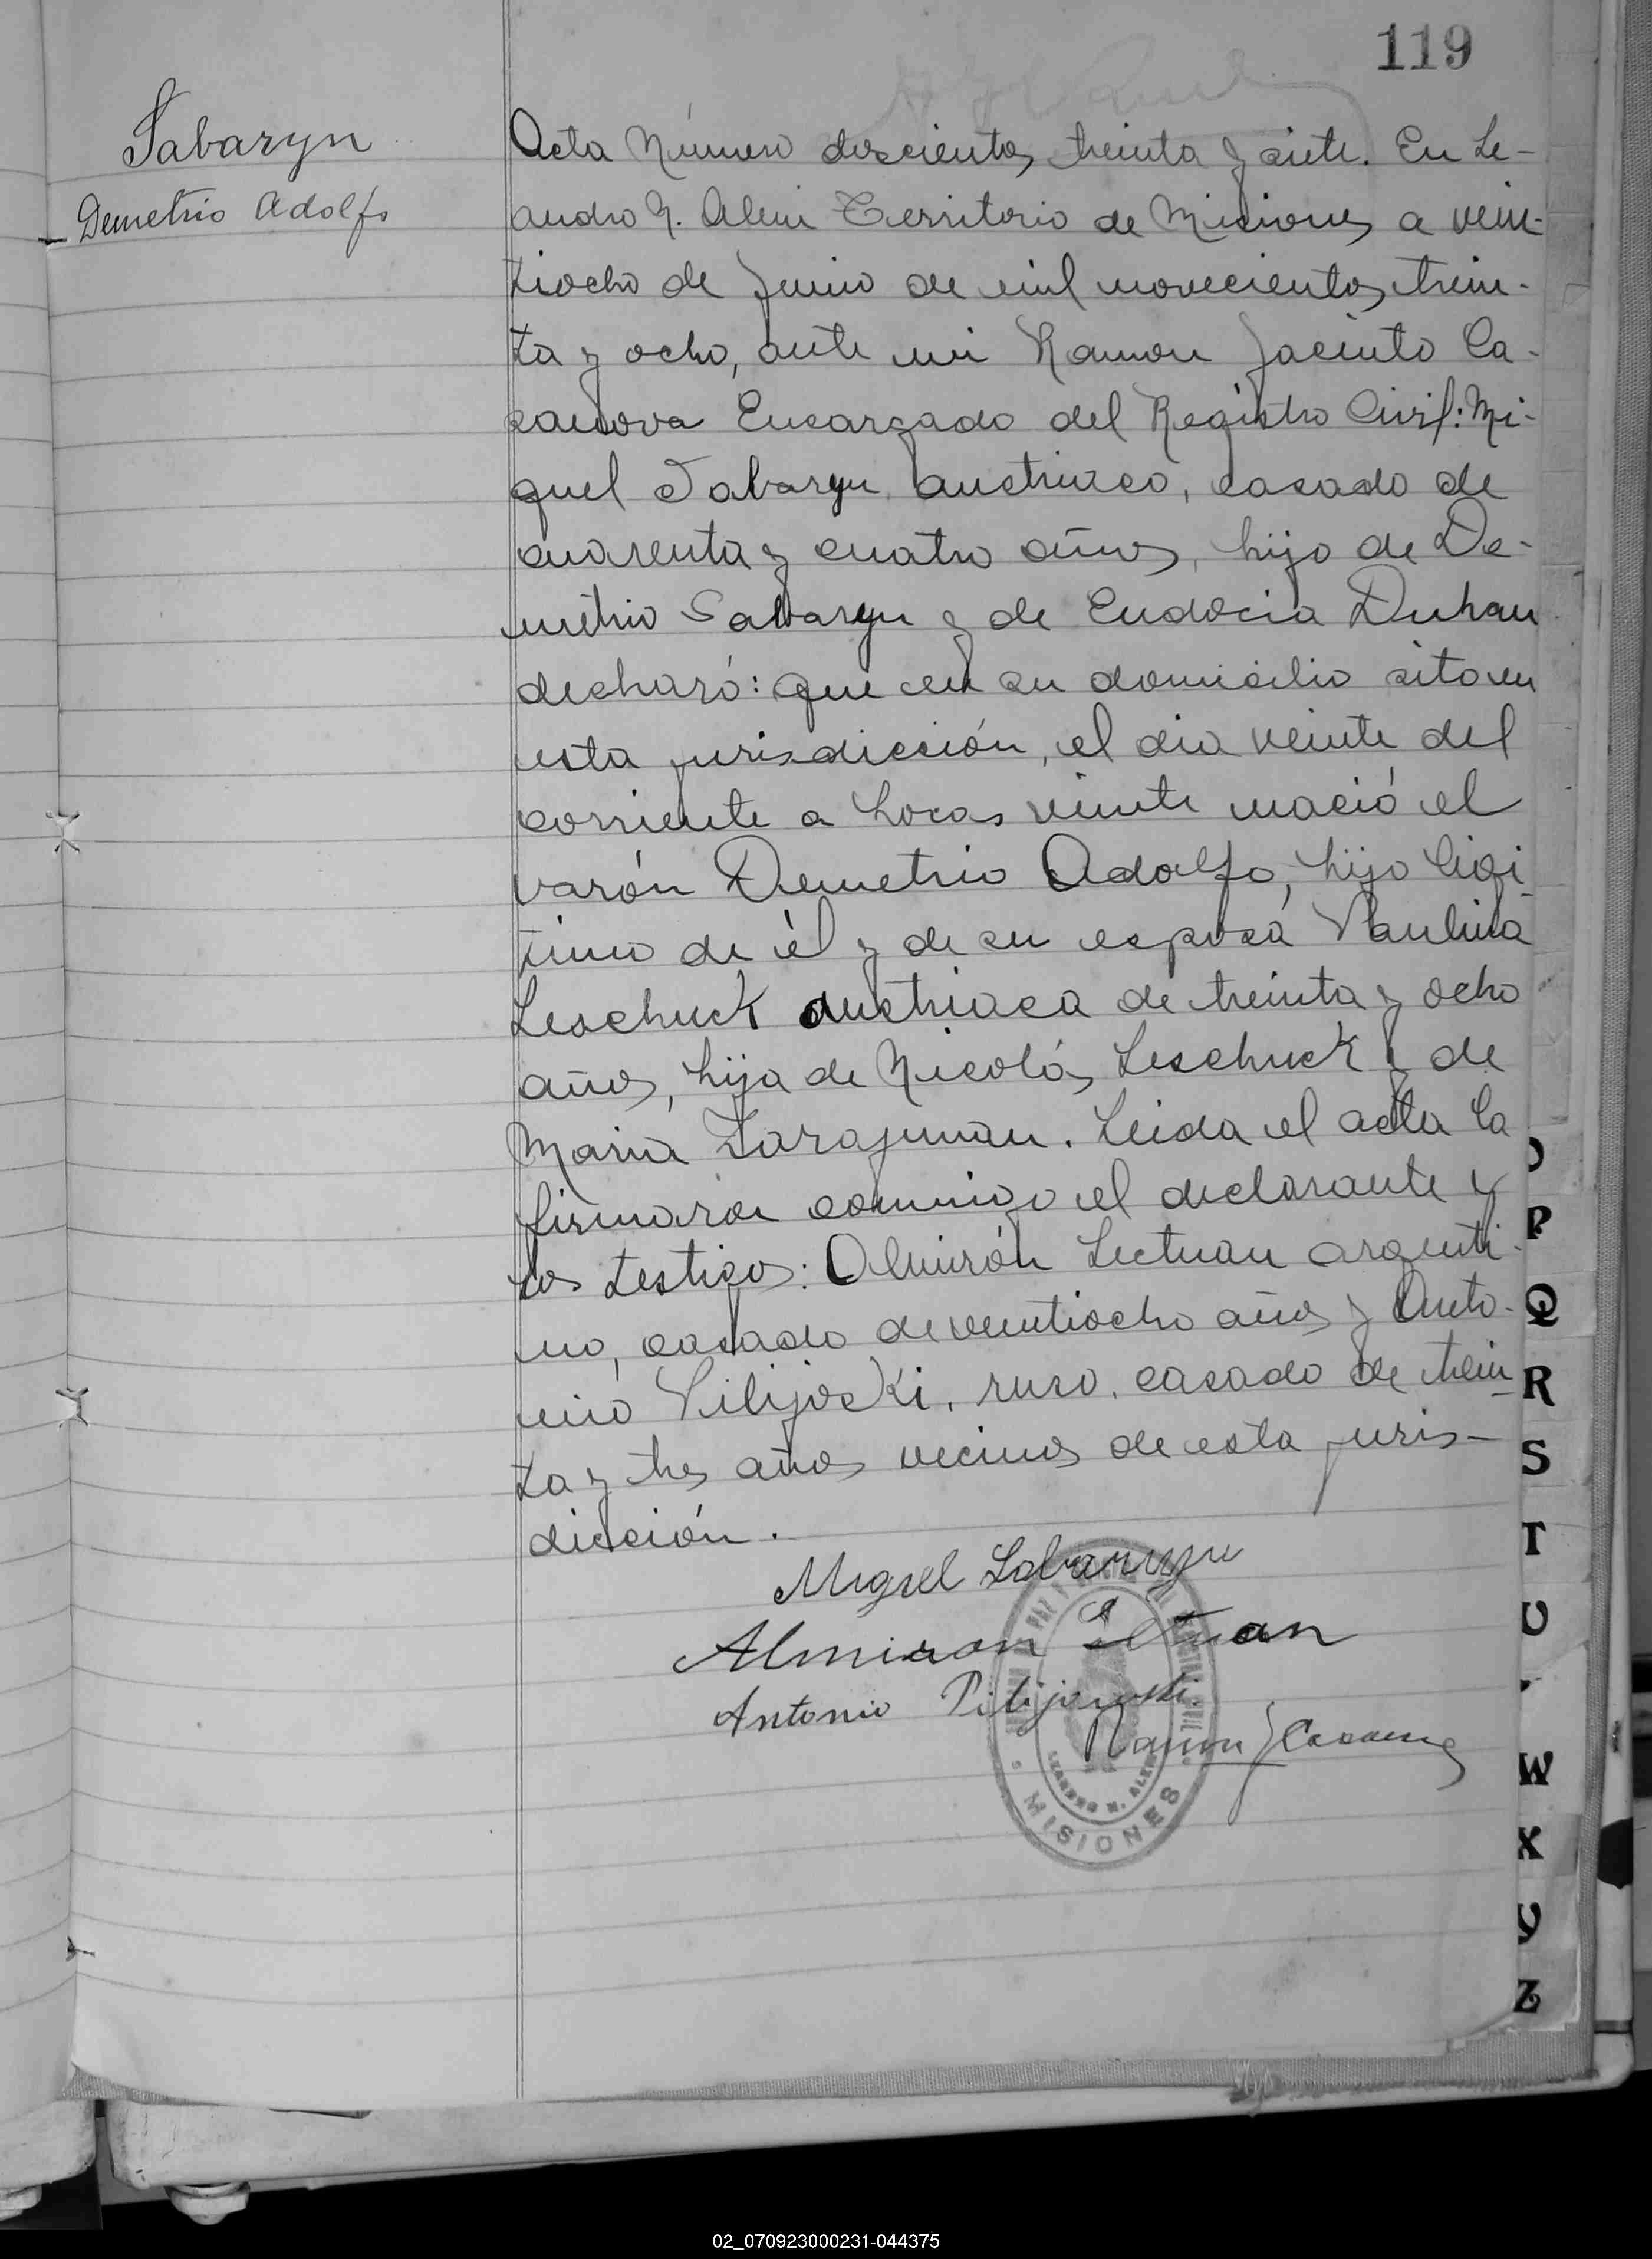 119
Sabaryn
Demetrio Adolfo
Acta Número doscientos treinta y siete. En Le-
andro N. Alem Territorio de Misiones a vein-
tiocho de Junio de mil novecientos trein-
ta y ocho, ante mi Ramon Jacinto Ca-
sanova Encargado del Registro Civil: Mi-
guel Sabaryn, austriaco, casado de
cuarenta y cuatro años, hijo de De-
metrio Sabaryn y de Eudocia Duhan
declaró: que en su domicilio sito en
esta jurisdicción, el dia veinte del
corriente a horas veinte nació el
varón Demetrio Adolfo, hijo legi-
timo de él y de su esposa Paulina
Leschuck austriaca de treinta y ocho
años, hija de Nicolás Leschuck y de
Maria Tarajman. Leida el acta la
firmaron conmigo el declarante y
los testigos: Almirón Lectuan argenti-
no, casado de veintiocho años y Anto-
nio Pilijoski, ruso, casado de trein-
ta y tres años vecinos de esta juris-
dicción.
Miguel Sabaryn
Almiron
Antonio
Ramon J Casanova
LEANDRO N. ALEM
MISIONES
P
Q
R
S
T
U
W
X
Y
Z
02_070923000231-044375